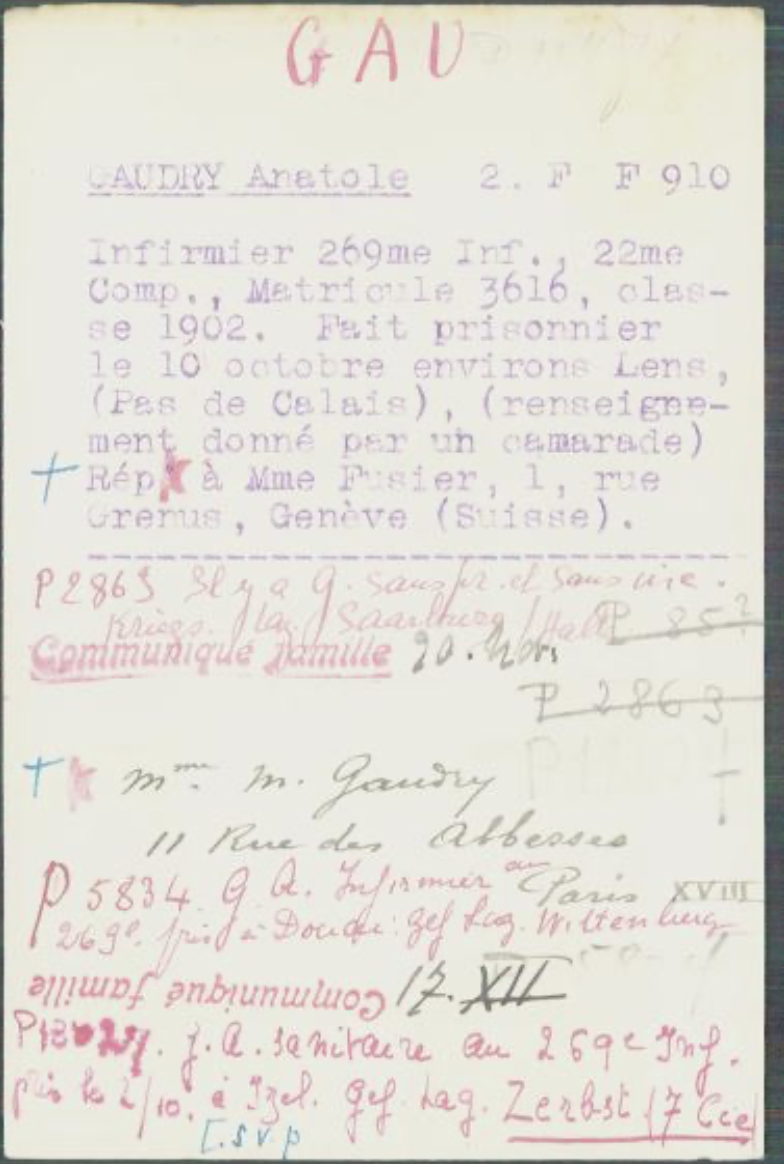 GAU
GAUDRY Anatole 2. F F 910
Infirmier 269me Inf., 22me
Comp., Matricule 3616, clas-
se 1902. Fait prisonnier
le 10 octobre environs Lens,
(Pas de Calais), (renseigne-
ment donné par un camarade)
+ Rép à Mme Fusier, 1, rue
Grenus, Genève (Suisse).
P 2863 Il y a G. sans pr. et sans
Kriegs. Laz. Saarburg P 85
Communiqué famille 20. Nov.
P 2863
+ Mme. M. Gaudry
11 Rue des Abbesses
Paris XVIII
P 5834 G A. Infirmier au
269e. pris à Douai: Gef Lag. Wittenberg
Communiqué famille 17. XII
J. A. sanitaire au 269e Inf.
pris le 2/10. à Izel. Gef. Lag. Zerbst (7 Cie)
T.S.V.P